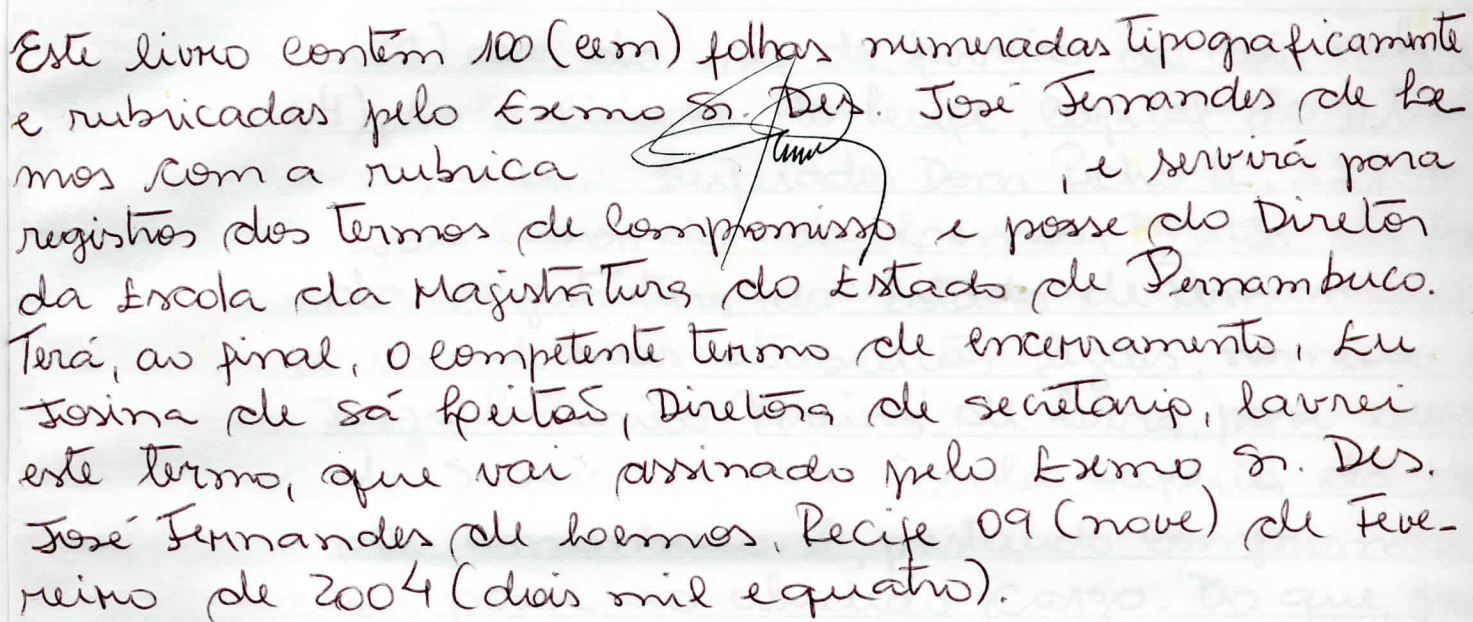 Este livro contém 100 (cem) folhas numeradas tipograficamente
e rubricadas pelo Exmo Sr. Des. José Fernandes de Le
mos com a rubrica , e servirá para
registros dos termos de Compromisso e posse do Diretor
da Escola da Magistratura do Estado de Pernambuco.
Terá, ao final, o competente termo de encerramento. Eu
Josina de Sá Leitão, Diretora de secretaria, lavrei
este termo, que vai assinado pelo Exmo Sr. Des.
José Fernandes de Lemos. Recife 09 (nove) de Feve-
reiro de 2004 (dois mil e quatro).